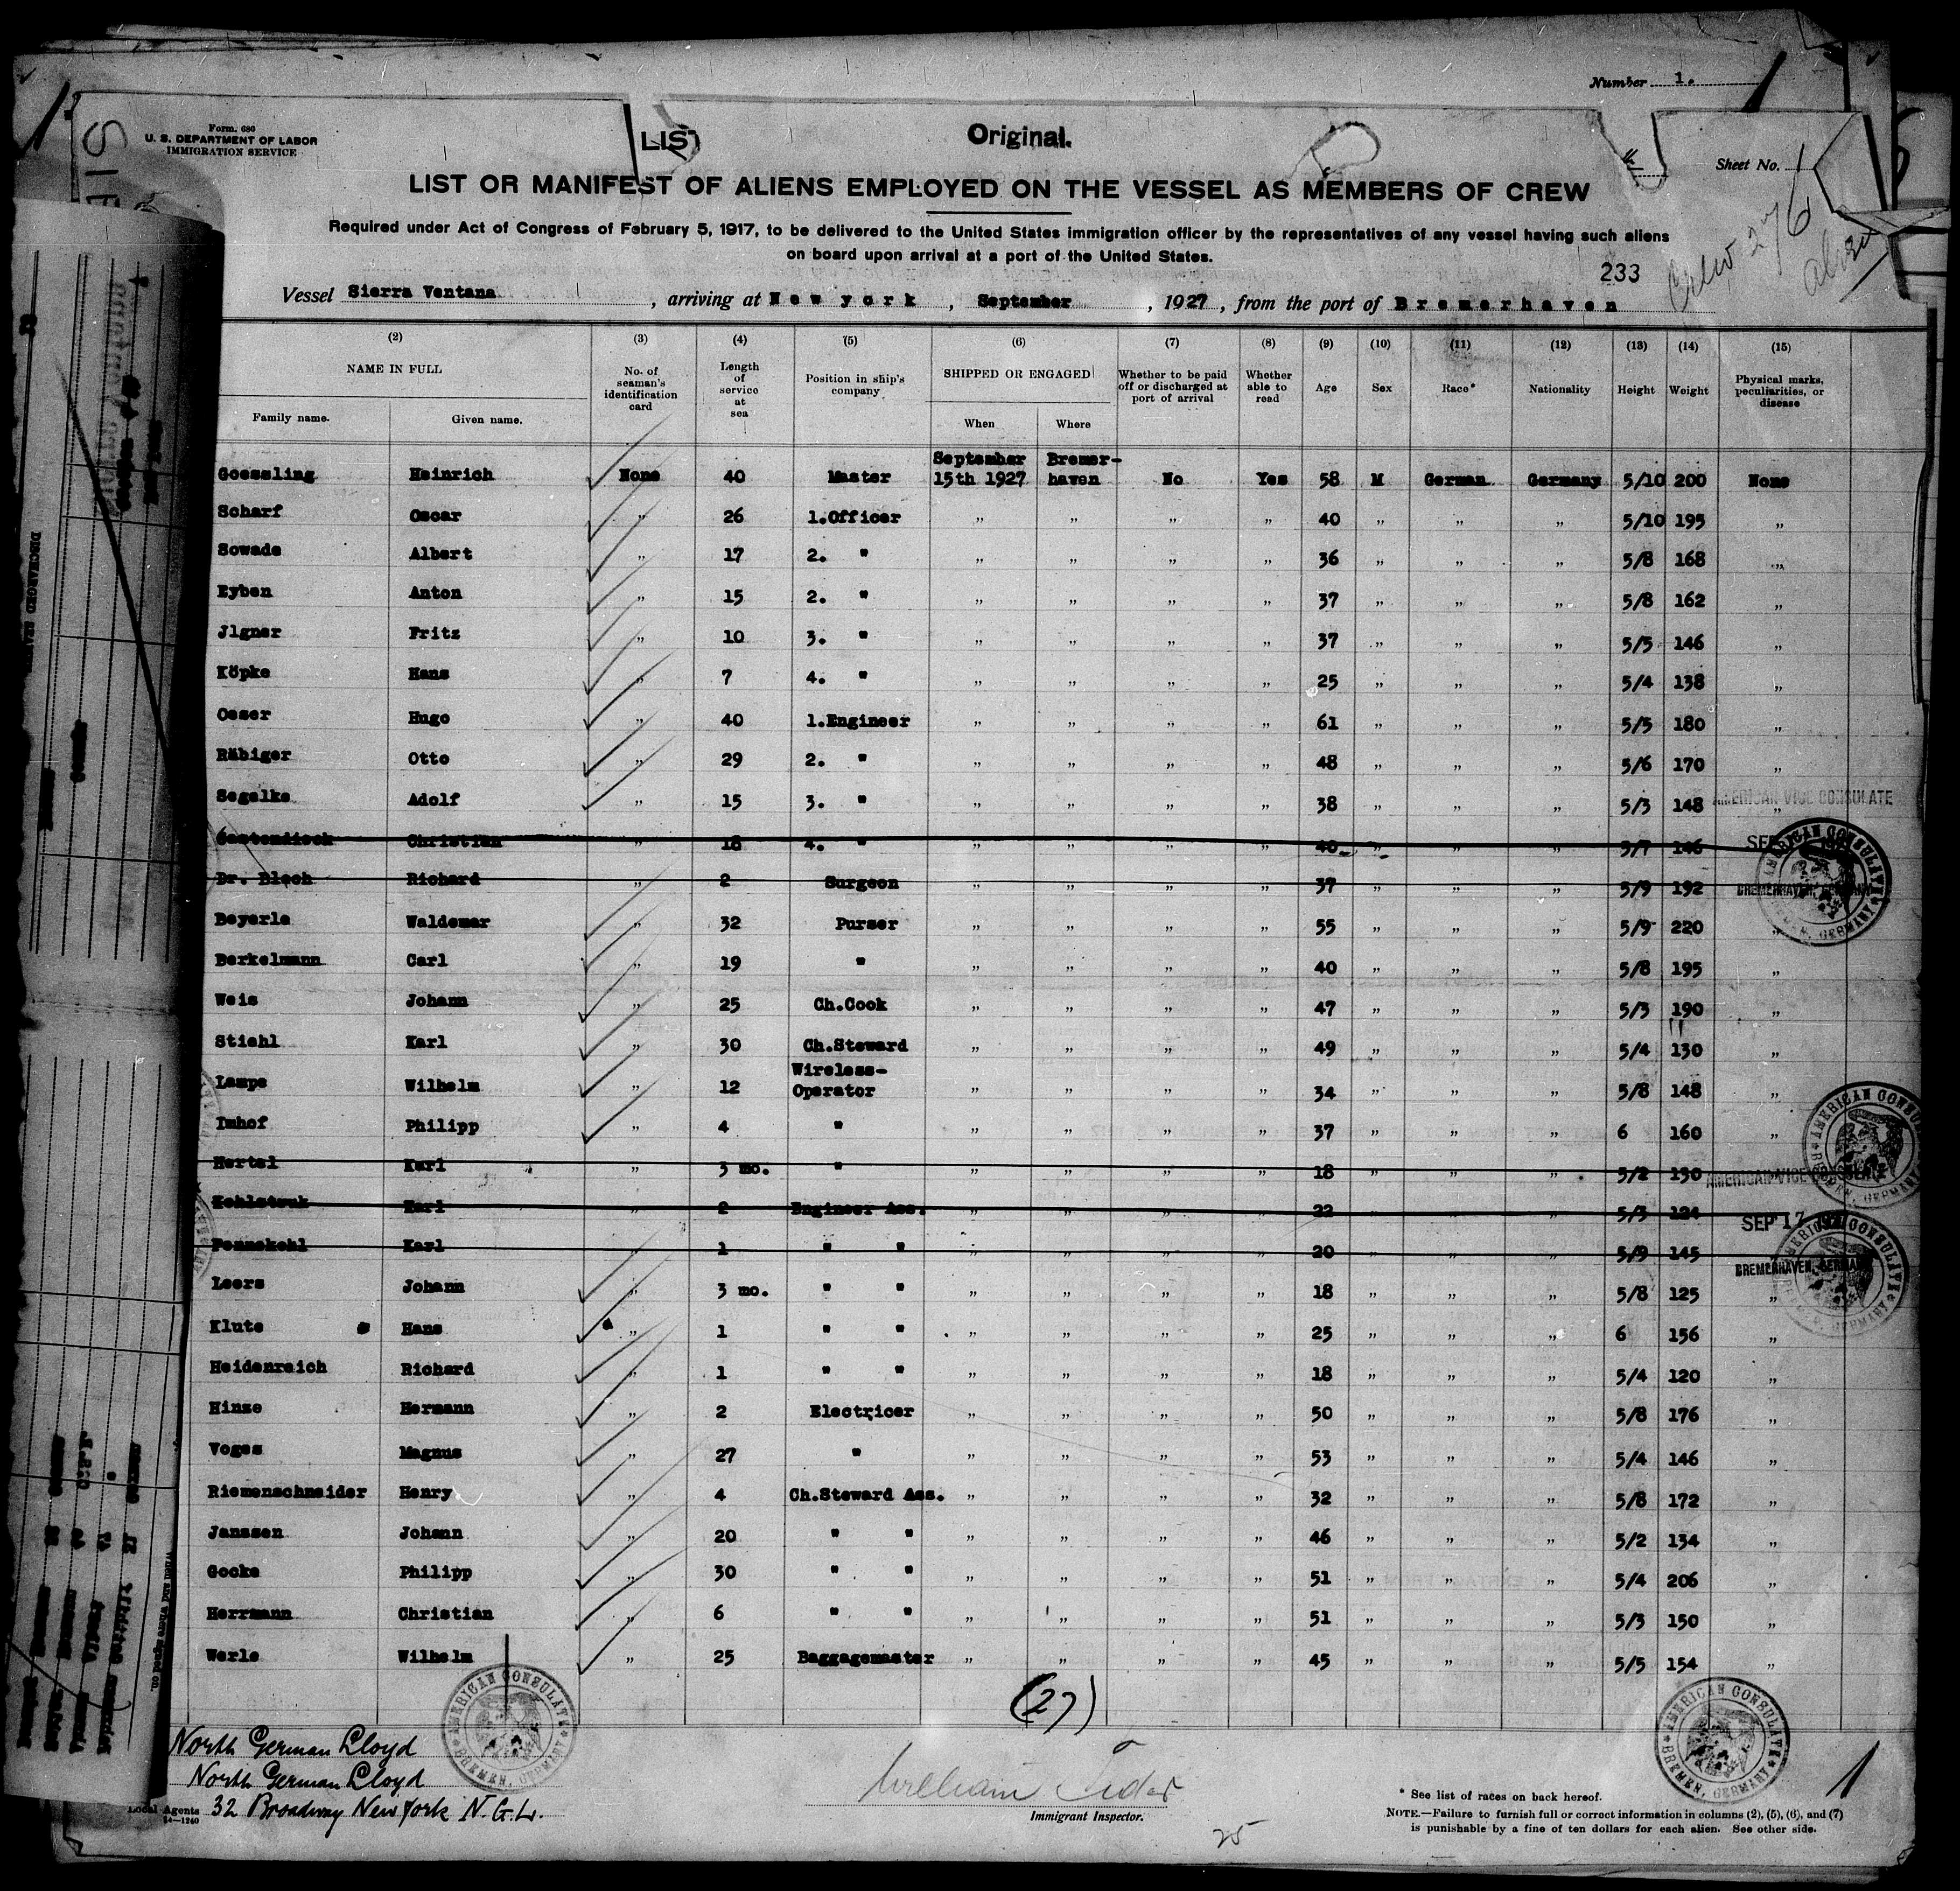 Number 1.
Form. 680
U. S. DEPARTMENT OF LABOR
IMMIGRATION SERVICE
LIS
Original.
Sheet No. 1
LIST OR MANIFEST OF ALIENS EMPLOYED ON THE VESSEL AS MEMBERS OF CREW
Required under Act of Congress of February 5, 1917, to be delivered to the United States immigration officer by the representatives of any vessel having such aliens
on board upon arrival at a port of the United States.
233
Crew 276
Vessel Sierra Ventana, arriving at New york, September, 1927, from the port of Bremerhaven
(2) (3) (4) (5) (6) (7) (8) (9) (10) (11) (12) (13) (14) (15)
NAME IN FULL No. of seaman's identification card Length of service at sea Position in ship's company SHIPPED OR ENGAGED Whether to be paid off or discharged at port of arrival Whether able to read Age Sex Race* Nationality Height Weight Physical marks, peculiarities, or disease
Family name. Given name. When Where
Goessling Heinrich None 40 Master September 15th 1927 Bremer-haven No Yes 58 M German Germany 5/10 200 None
Scharf Oscar „ 26 1.Officer „ „ „ „ 40 „ „ „ 5/10 195 „
Sowade Albert „ 17 2. " „ „ „ „ 36 „ „ „ 5/8 168 „
Eyben Anton „ 15 2. " „ „ „ „ 37 „ „ „ 5/8 162 „
Jlgner Fritz „ 10 3. " „ „ „ „ 37 „ „ „ 5/5 146 „
Köpke Hans „ 7 4. " „ „ „ „ 25 „ „ „ 5/4 138 „
Oeser Hugo „ 40 1.Engineer „ „ „ „ 61 „ „ „ 5/5 180 „
Räbiger Otto „ 29 2. " „ „ „ „ 48 „ „ „ 5/6 170 „
Segelke Adolf „ 15 3. " „ „ „ „ 38 „ „ „ 5/3 148 „
Christian „ 18 4. " „ „ „ „ 40 „ „ „ 5/7 146
Dr. Blech Richard „ 2 Surgeon „ „ „ „ 37 „ „ „ 5/9 192
Beyerle Waldemar „ 32 Purser „ „ „ „ 55 „ „ „ 5/9 220 „
Berkelmann Carl „ 19 " „ „ „ „ 40 „ „ „ 5/8 195 „
Weis Johann „ 25 Ch.Cook „ „ „ „ 47 „ „ „ 5/3 190 „
Stiehl Karl „ 30 Ch.Steward „ „ „ „ 49 „ „ „ 5/4 130 „
Lampe Wilhelm „ 12 Wireless-Operator „ „ „ „ 34 „ „ „ 5/8 148 „
Imhof Philipp „ 4 " „ „ „ „ 37 „ „ „ 6 160 „
Hertel Karl „ 3 mo. " „ „ „ „ 18 „ „ „ 5/2 130 „
Karl „ 2 Engineer Ass. „ „ „ „ 22 „ „ „ 5/3 124
Karl 1 " " „ „ „ „ 20 „ „ „ 5/9 145
Leers Johann „ 3 mo. " " „ „ „ „ 18 „ „ „ 5/8 125 „
Klute Hans „ 1 " " „ „ „ „ 25 „ „ „ 6 156 „
Heidenreich Richard „ 1 " " „ „ „ „ 18 „ „ „ 5/4 120 „
Hinze Hermann „ 2 Electricer „ „ „ „ 50 „ „ „ 5/8 176 „
Voges Magnus „ 27 " „ „ „ „ 53 „ „ „ 5/4 146 „
Riemenschneider Henry „ 4 Ch.Steward Ass. „ „ „ „ 32 „ „ „ 5/8 172 „
Janssen Johann „ 20 " " „ „ „ „ 46 „ „ „ 5/2 134 „
Gocke Philipp „ 30 " " „ „ „ „ 51 „ „ „ 5/4 206 „
Herrmann Christian „ 6 " " „ „ „ „ 51 „ „ „ 5/3 150 „
Werle Wilhelm „ 25 Baggagemaster „ „ „ „ 45 „ „ „ 5/5 154 „
AMERICAN VICE CONSULATE
SEP
BREMERHAVEN, GERMANY
AMERICAN CONSULATE BREMEN, GERMANY
AMERICAN CONSULATE BREMEN, GERMANY
AMERICAN VICE CONSULATE
SEP 17
BREMERHAVEN, GERMANY
AMERICAN CONSULATE BREMEN, GERMANY
(27)
AMERICAN CONSULATE BREMEN, GERMANY
AMERICAN CONSULATE BREMEN, GERMANY
North German Lloyd
North German Lloyd
Local Agents 32 Broadway New York N.G.L.
14—1240
Immigrant Inspector.
25
1
* See list of races on back hereof.
NOTE.—Failure to furnish full or correct information in columns (2), (5), (6), and (7)
is punishable by a fine of ten dollars for each alien. See other side.
DISCHARGED